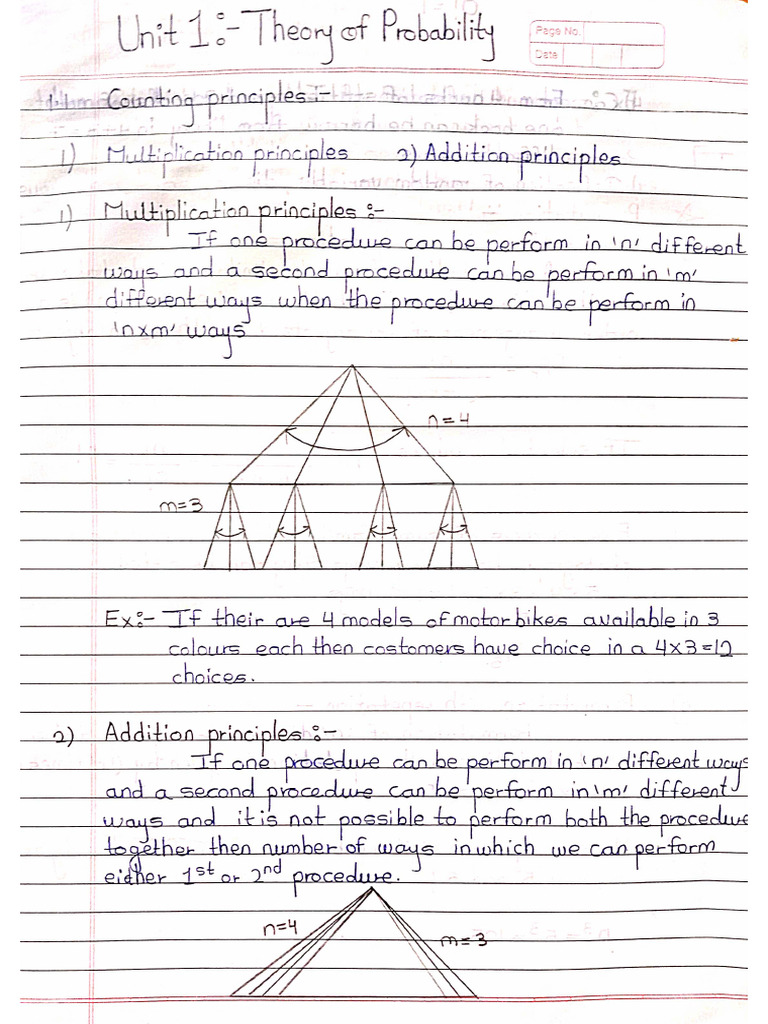 Unit 1:- Theory of Probability
Page No.
Date
1.1 Counting principles:-
1) Multiplication principles 2) Addition principles
1) Multiplication principles :-
If one procedure can be perform in 'n' different
ways and a second procedure can be perform in 'm'
different ways when the procedure can be perform in
'n×m' ways
n=4
m=3
Ex:- If their are 4 models of motor bikes available in 3
colours each then costomers have choice in a 4×3=12
choices.
2) Addition principles :-
If one procedure can be perform in 'n' different ways
and a second procedure can be perform in 'm' different
ways and it is not possible to perform both the procedure
together then number of ways in which we can perform
either 1st or 2nd procedure.
n=4
m=3